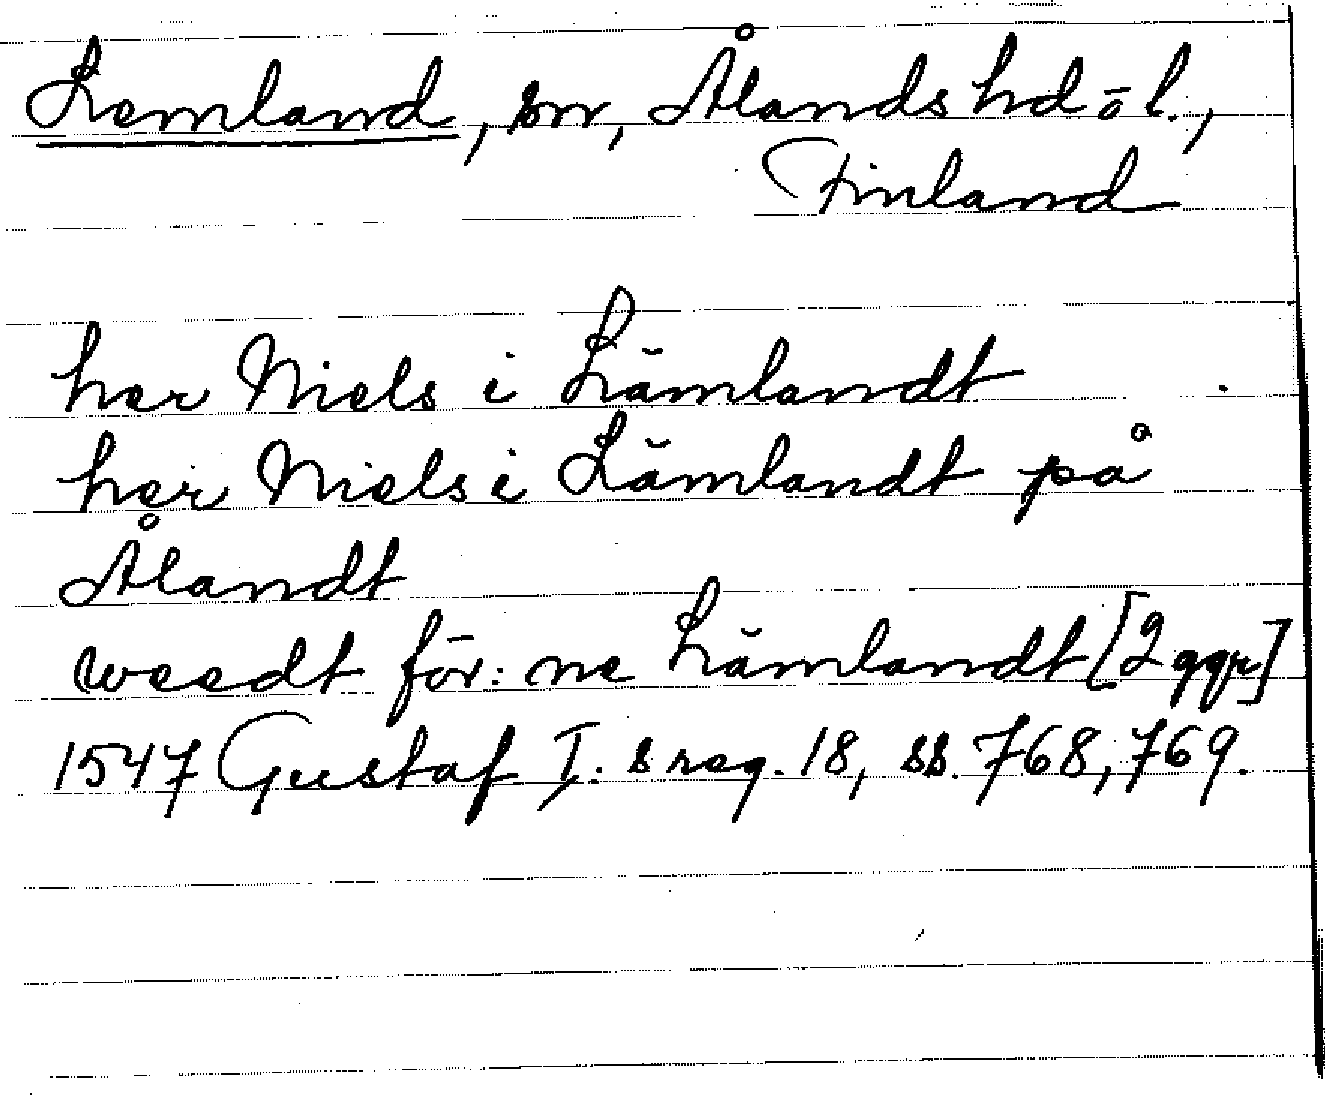 Lemland, sn, Ålands hd ō l.,
Finland
her Niels i Lämlandt
her Niels i Lämlandt på
Ålandt
weedt för: ne Lämlandt [2 ggr]
1547 Gustaf I: s reg. 18, ss. 768, 769.